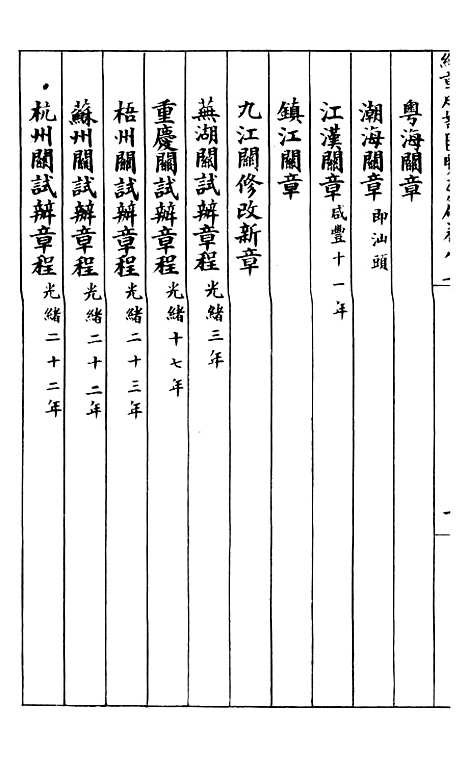 粵海關章
潮海關章即汕頭
江漢關章咸豐十一年
鎮江關章
九江關修改新章
蕪湖關試辦章程光緒三年
重慶關試辦章程光緒十七年
梧州關試辦章程光緒二十三年
蘇州關試辦章程光緒二十二年
杭州關試辦章程光緒二十二年